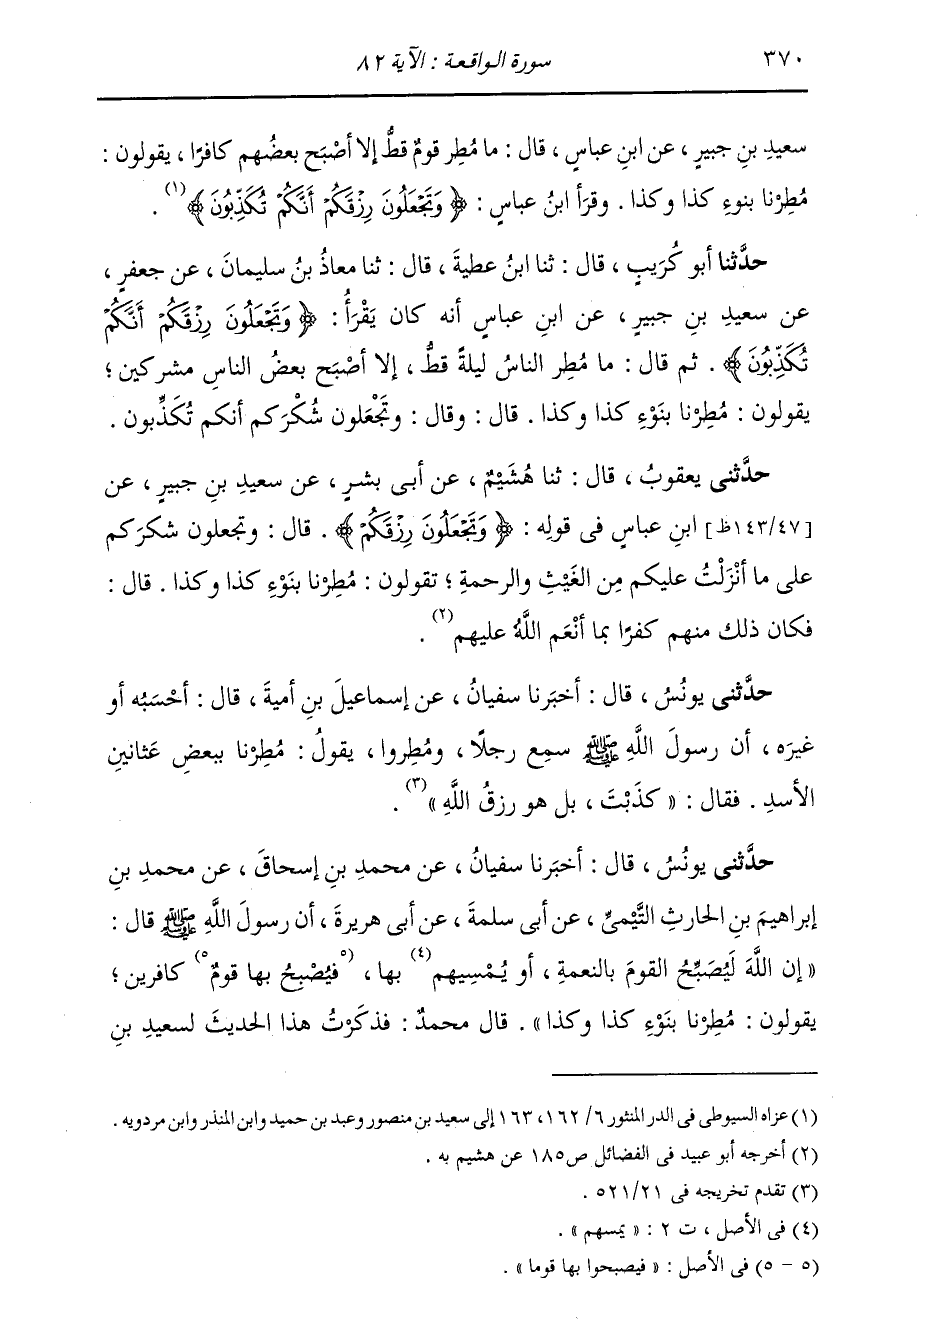 ٣٧٠ سورة الواقعة : الآية ٨٢
سعيدِ بنِ جبيرٍ ، عن ابنِ عباسٍ ، قال : ما مُطِر قومٌ قطُّ إلا أصْبَح بعضُهم كافرًا ، يقولون :
مُطِرْنا بنوءِ كذا وكذا . وقرَأ ابنُ عباسٍ : ﴿ وَتَجْعَلُونَ رِزْقَكُمْ أَنَّكُمْ تُكَذِّبُونَ ﴾ (١) .
حدَّثنا أبو كُرَيبٍ ، قال : ثنا ابنُ عطيةَ ، قال : ثنا معاذُ بنُ سليمانَ ، عن جعفرٍ ،
عن سعيدِ بنِ جبيرٍ ، عن ابنِ عباسٍ أنه كان يَقْرَأُ : ﴿ وَتَجْعَلُونَ رِزْقَكُمْ أَنَّكُمْ
تُكَذِّبُونَ ﴾ . ثم قال : ما مُطِر الناسُ ليلةً قطُّ ، إلا أصْبَح بعضُ الناسِ مشركين ؛
يقولون : مُطِرْنا بنَوْءِ كذا وكذا . قال : وقال : وتَجْعَلون شُكْرَكم أنكم تُكَذِّبون .
حدَّثنى يعقوبُ ، قال : ثنا هُشَيْمٌ ، عن أبى بشرٍ ، عن سعيدِ بنِ جبيرٍ ، عن
[١٤٣/٤٧ظ] ابنِ عباسٍ فى قولِه : ﴿ وَتَجْعَلُونَ رِزْقَكُمْ ﴾ . قال : وتجعلون شكرَكم
على ما أنْزَلْتُ عليكم مِن الغَيْثِ والرحمةِ ؛ تقولون : مُطِرْنا بنَوْءِ كذا وكذا . قال :
فكان ذلك منهم كفرًا بما أنْعَم اللَّهُ عليهم (٢) .
حدَّثنى يونُسُ ، قال : أخبَرنا سفيانُ ، عن إسماعيلَ بنِ أميةَ ، قال : أحْسَبُه أو
غيرَه ، أن رسولَ اللَّهِ ﷺ سمِع رجلًا ، ومُطِروا ، يقولُ : مُطِرْنا ببعضِ عَثانينِ
الأسدِ . فقال : « كذَبْتَ ، بل هو رزقُ اللَّهِ » (٣) .
حدَّثنى يونُسُ ، قال : أخبَرنا سفيانُ ، عن محمدِ بنِ إسحاقَ ، عن محمدِ بنِ
إبراهيمَ بنِ الحارثِ التَّيْمىِّ ، عن أبى سلمةَ ، عن أبى هريرةَ ، أن رسولَ اللَّهِ ﷺ قال :
« إن اللَّهَ لَيُصَبِّحُ القومَ بالنعمةِ ، أو يُمْسِيهم (٤) بها ، (٥ فيُصْبِحُ بها قومٌ ٥) كافرين ؛
يقولون : مُطِرْنا بنَوْءِ كذا وكذا » . قال محمدٌ : فذكَرْتُ هذا الحديثَ لسعيدِ بنِ
(١) عزاه السيوطى فى الدر المنثور ٦/ ١٦٢، ١٦٣ إلى سعيد بن منصور وعبد بن حميد وابن المنذر وابن مردويه .
(٢) أخرجه أبو عبيد فى الفضائل ص١٨٥ عن هشيم به .
(٣) تقدم تخريجه فى ٥٢١/٢١ .
(٤) فى الأصل ، ت ٢ : « يمسهم » .
(٥ - ٥) فى الأصل : « فيصبحوا بها قوما » .